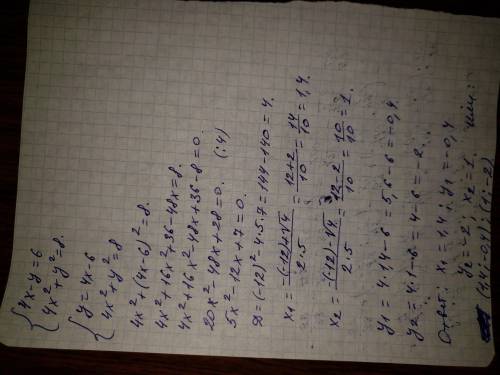 { 4x-y=6
4x²+y²=8.
{ y=4x-6
4x²+y²=8
4x²+(4x-6)²=8.
4x²+16x²+36-48x=8.
4x²+16x²-48x+36-8=0.
20x²-48x+28=0. (:4)
5x²-12x+7=0.
D=(-12)²-4·5·7=144-140=4.
x₁= -(-12)+√4 / 2·5 = 12+2 / 10 = 14 / 10 = 1,4.
x₂= -(-12)-√4 / 2·5 = 12-2 / 10 = 10 / 10 = 1.
y₁=4·1,4-6=5,6-6=-0,4.
y₂=4·1-6=4-6=-2.
Ответ: x₁=1,4; y₁=-0,4
y₂=-2; x₂=1. или:
(1,4;-0,4);(1;-2)